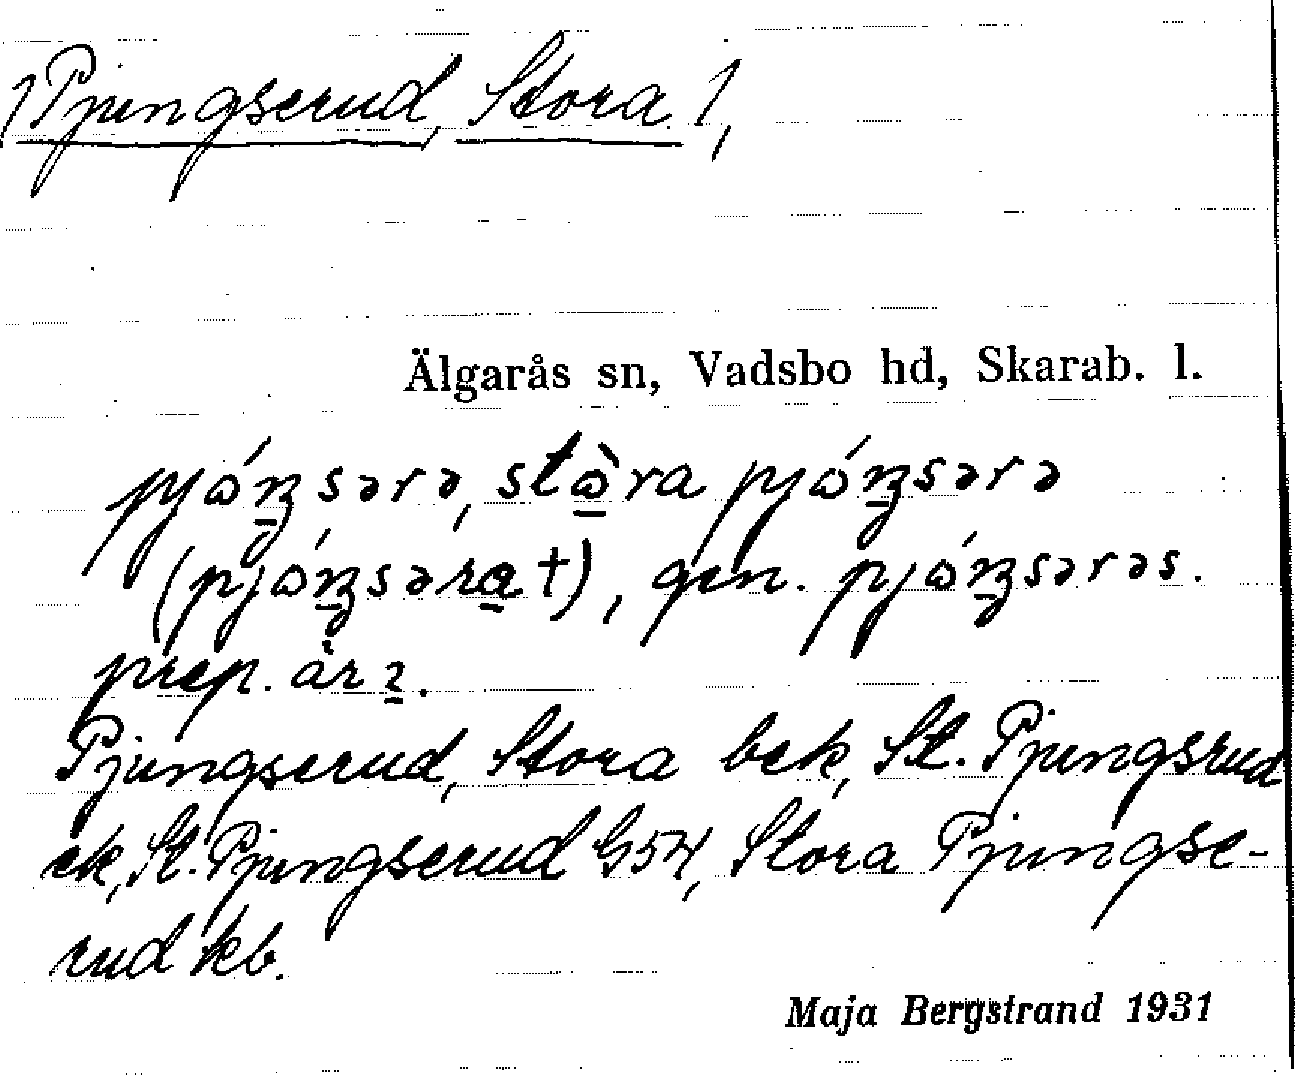 1 Pjungserud, Stora 1,
Älgarås sn, Vadsbo hd, Skarab. l.
pjɷ́ŋsərə, stɷ̀ra pjɷ́ŋsərə
(pjɷ́ŋsəra †), gen. pjɷ́ŋsərəs.
prep.
Pjungserud, Stora bek, St. Pjungsrud
ek, St. Pjungserud G54, Stora Pjungse-
rud kb.
Maja Bergstrand 1931